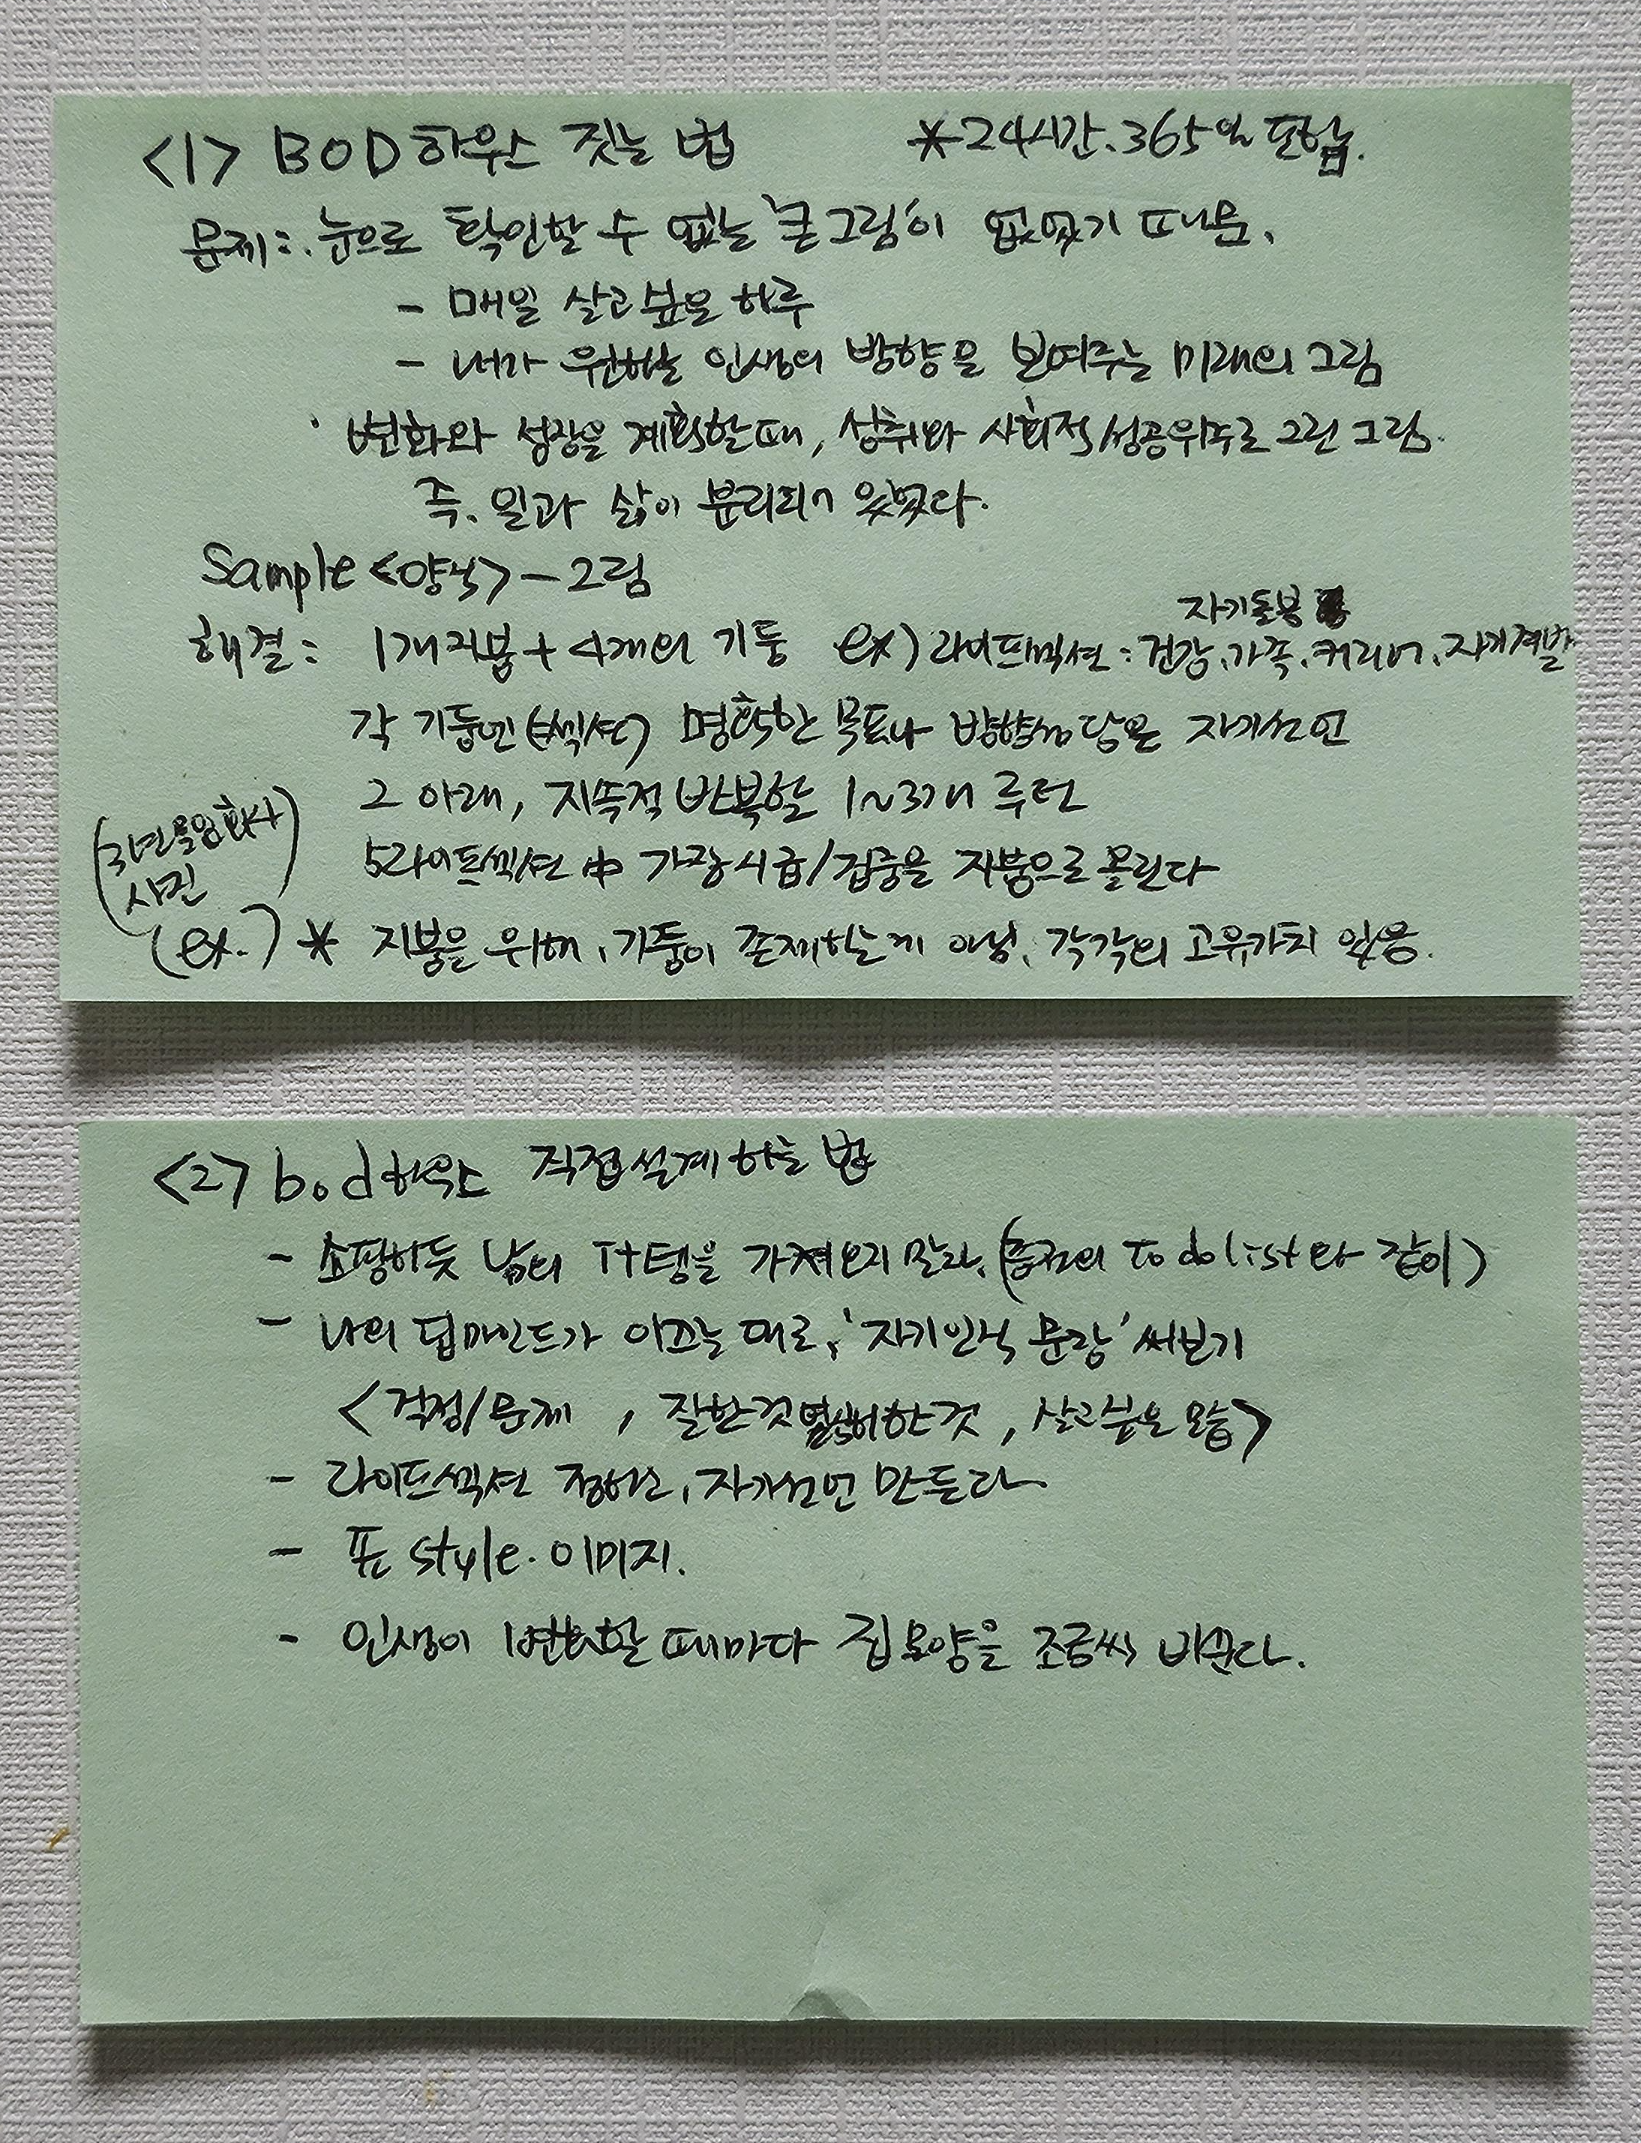 <1> BOD하우스 짓는 법 *24시간.365일 포함.
문제: . 눈으로 확인할 수 없는 '큰그림'이 없었기 때문.
- 매일 살고싶은 하루
- 내가 원하는 인생의 방향을 보여주는 미래의 그림
· 변화와 성장을 계획할때, 성취와 사회적성공위주로 그린 그림.
즉. 일과 삶이 분리되어 있었다.
Sample <양식> - 그림
자기돌봄
해결: 1개지붕 + 4개의 기둥 ex) 라이프섹션: 건강.가족.커리어.자기계발
각 기둥엔(섹션) 명확한 목표나 방향성 담은 자기선언
그 아래, 지속적 반복할 1~3개 루틴
(3년 사진
5라이프섹션 中 가장 시급/집중을 지붕으로 올린다
(ex.) * 지붕을 위해, 기둥이 존재하는게 아님. 각각의 고유가치 있음.
<2> bod하우스 직접설계하는 법
- 쇼핑하듯 남의 It템을 가져오지 말라. (To do list와 같이)
- 나의 딥마인드가 이끄는 대로, '자기인식 문장' 써보기
<걱정/문제, 잘한것 열심히한것, 살고싶은 모습>
- 라이프섹션 정하고, 자기선언 만든다
- 표 style. 이미지.
- 인생이 변화할 때마다 집모양을 조금씩 바꾼다.